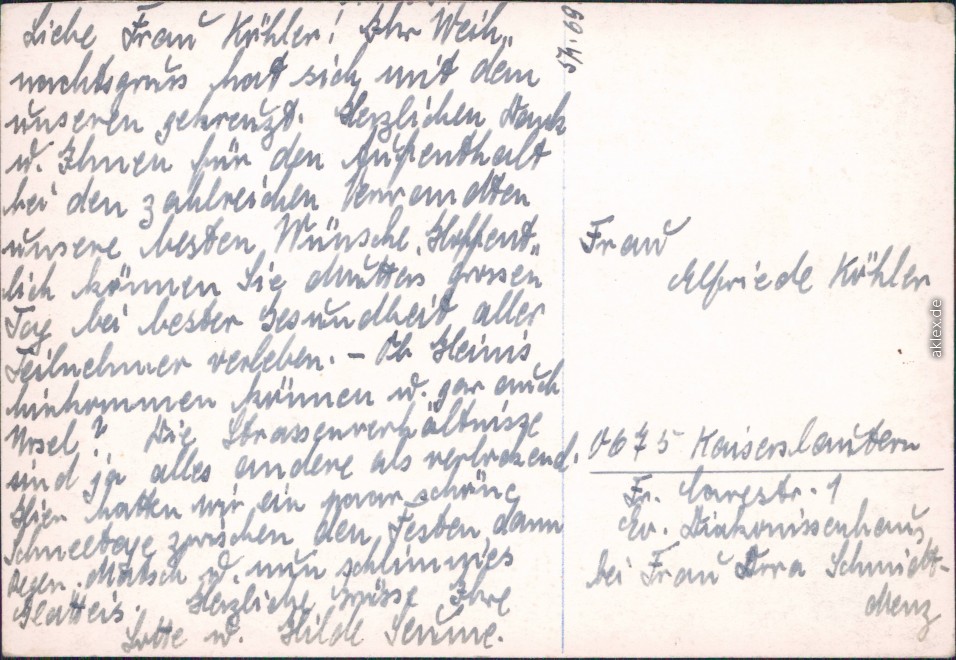 Liebe Frau Köhler! Ihr Weih„
nachtsgruss hat sich mit dem
unseren gekreuzt. Herzlichen Dank
u. Ihnen für den Aufenthalt
bei den zahlreichen Verwandten
unsere besten Wünsche. Hoffent„
lich können Sie Mutters grossen
Tag bei bester Gesundheit aller
Teilnehmer verleben. – Ob Heinis
hinkommen können u. gar auch
Ursel? Die Strassenverhältnisse
sind ja alles andere als verlockend.
Hier hatten wir ein paar schöne
Schneetage zwischen den Festen, dann
Regen, Matsch u. nun schlimmes
Glatteis. Herzliche Grüsse Ihre
Lotte u. Hilde
5/1.69
Frau
Elfriede Köhler
675 Kaiserslautern
Fr.
Ev. Diakonissenhaus
bei Frau Dora Schmidt-
Menz
aklex.de